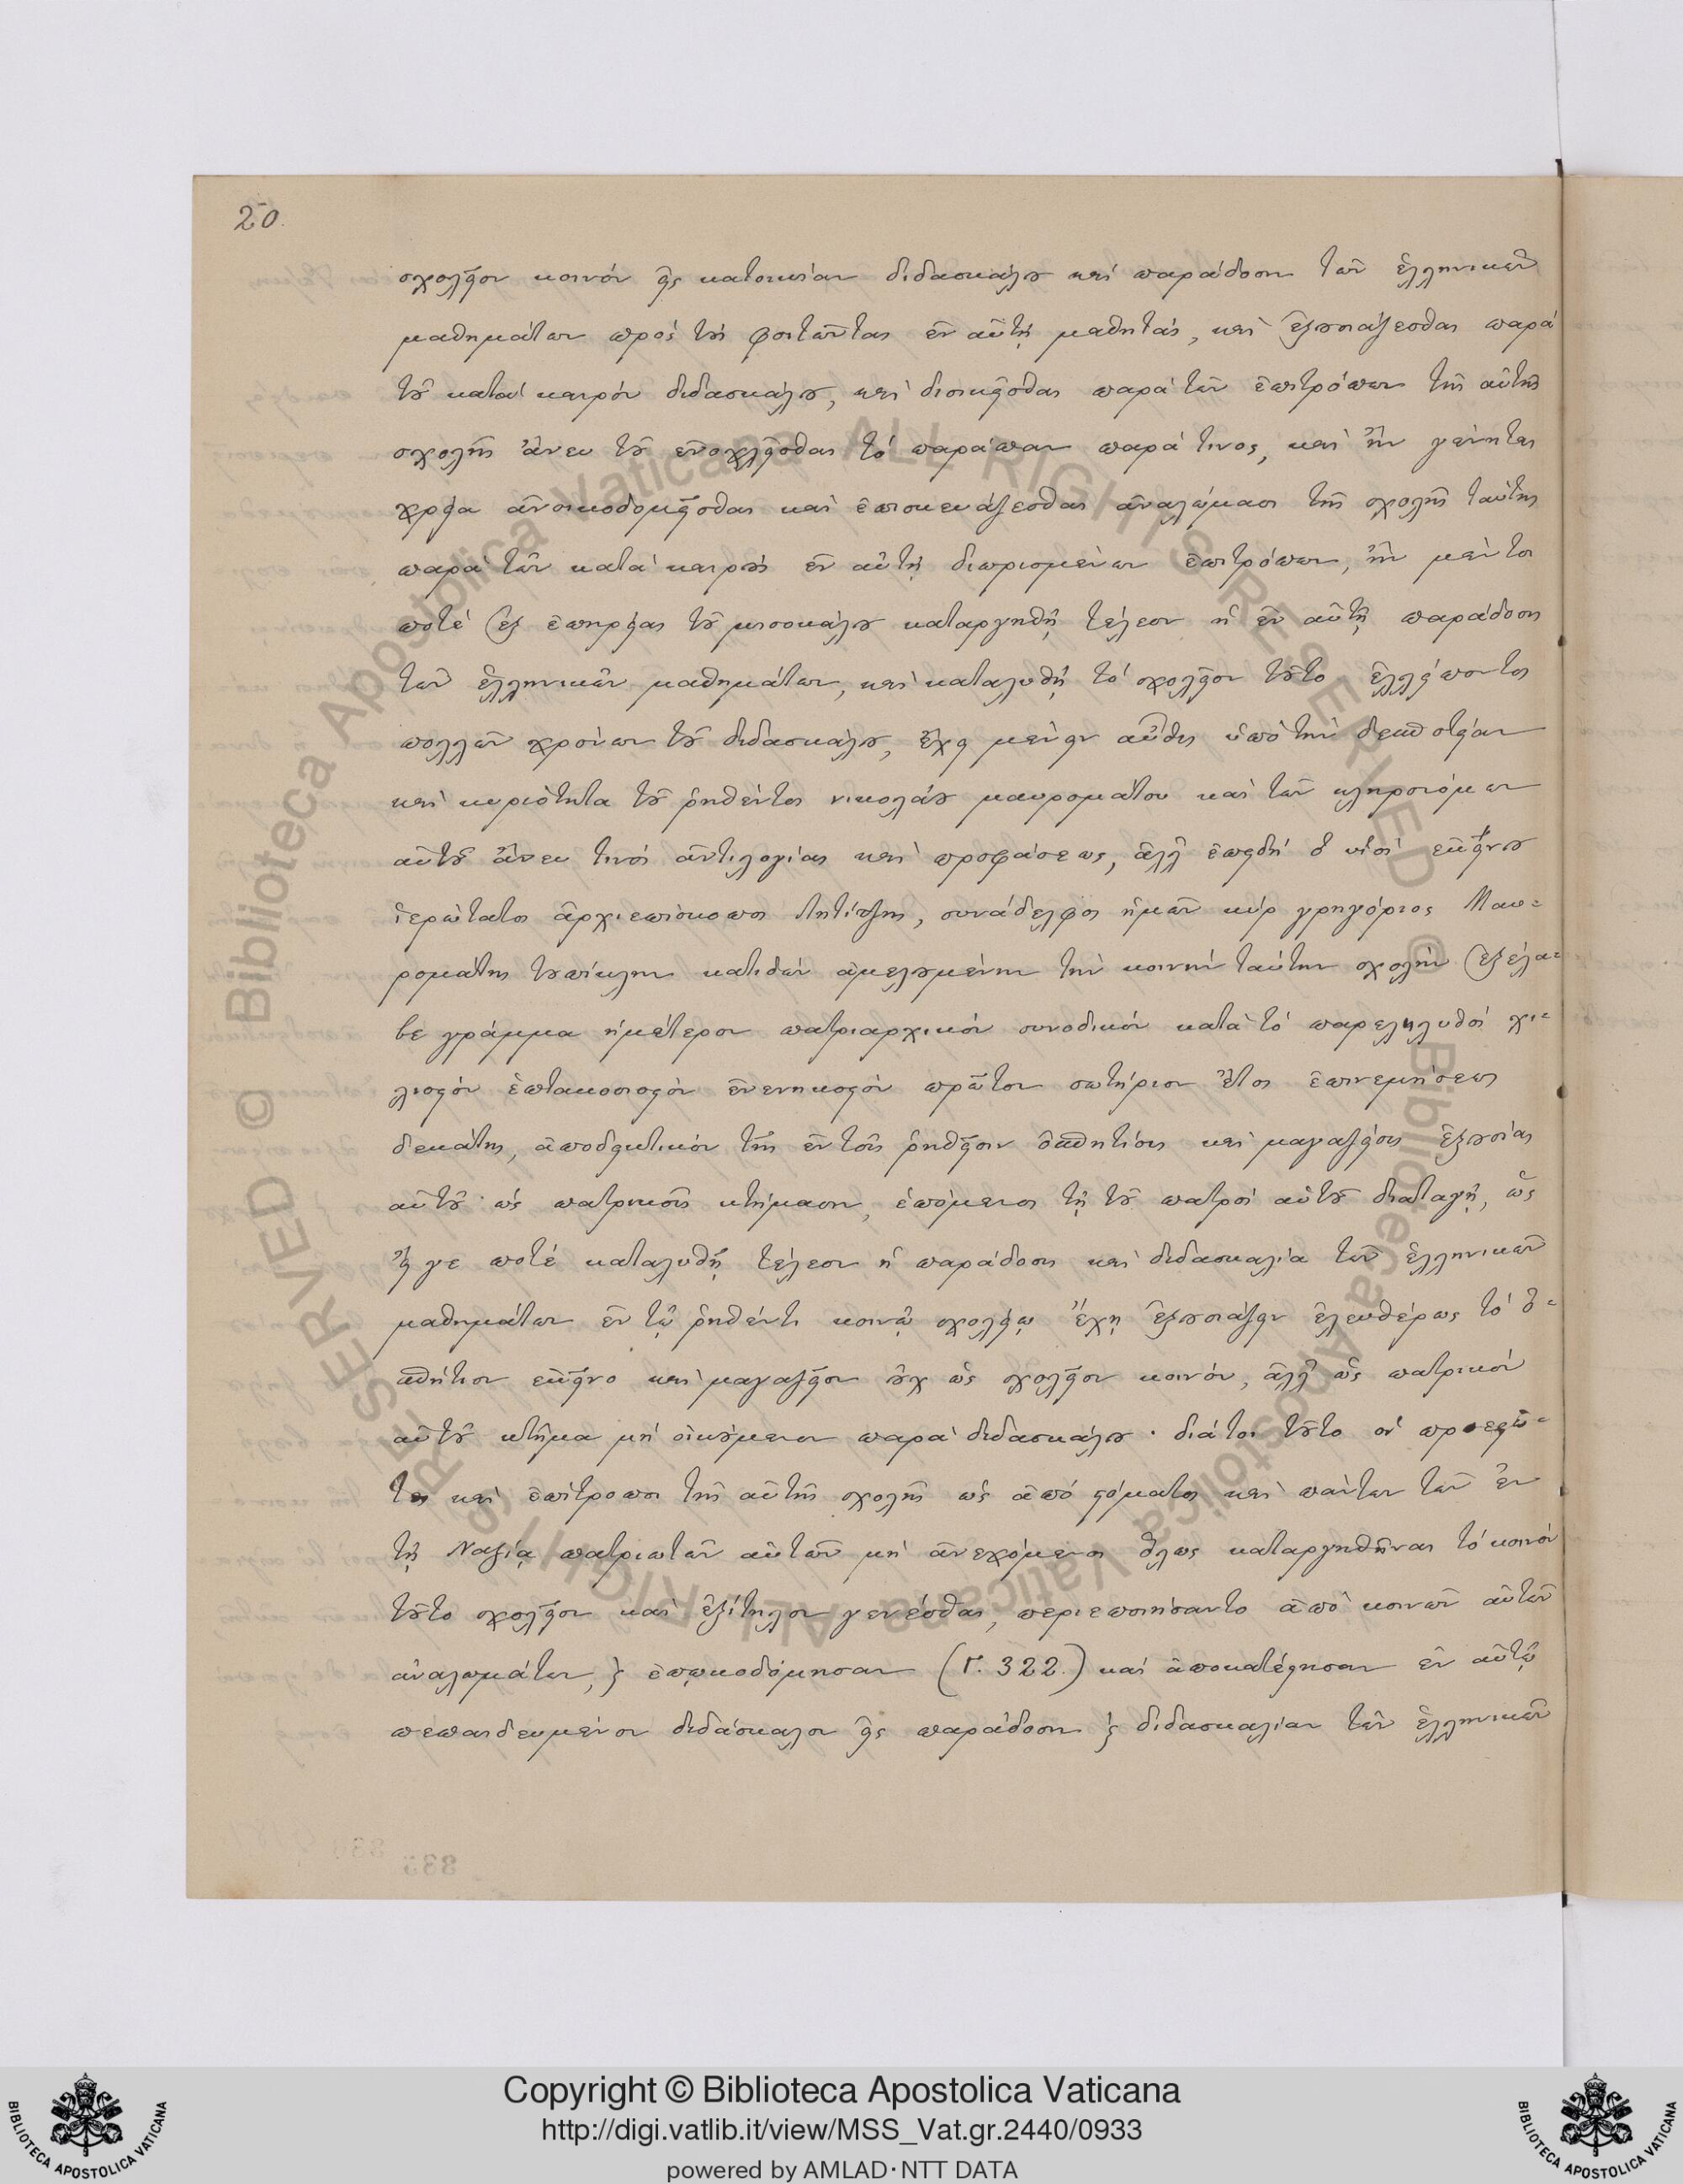 20.
σχολεῖον κοινόν εἰς κατοικίαν διδασκάλου καί παράδοσιν τῶν ἑλληνικῶν
μαθημάτων πρός τούς φοιτῶντας ἐν αὐτῇ μαθητάς, καί ἐξουσιάζεσθαι παρά
τοῦ κατά καιρόν διδασκάλου, καί διοικεῖσθαι παρά τῶν ἐπιτρόπων τῆς αὐτῆς
σχολῆς ἄνευ τοῦ ἐνοχλεῖσθαι τό παράπαν παρά τινος, καί ἢν γένηται
χρεία ἀνοικοδομεῖσθαι καί ἐπισκευάζεσθαι ἀναλώμασι τῆς σχολῆς ταύτης
παρά τῶν κατά καιρούς ἐν αὐτῇ διωρισμένων ἐπιτρόπων, ἢν μέντοι
ποτέ ἐξ ἐπηρείας τοῦ μισοκάλου καταργηθῇ τέλεον ἡ ἐν αὐτῇ παράδοσις
τῶν ἑλληνικῶν μαθημάτων, καί καταλυθῇ τό σχολεῖον τοῦτο ἐλλείποντος
πολλῶν χρόνων τοῦ διδασκάλου, ἔχει μένειν αὖθις ὑπό τήν δεσποτείαν
καί κυριότητα τοῦ ῥηθέντος νικολάου μαυρομάτου καί τῶν κληρονόμων
αὐτοῦ ἄνευ τινός ἀντιλογίας καί προφάσεως, ἀλλ' ἐπειδή ὁ υἱός ἐκείνου
ἱερώτατος ἀρχιεπίσκοπος Λητίτζης, συνάδελφος ἡμῶν κύρ γρηγόριος Μαυ-
ρομάτης τοὐπίκλην κατιδών ἀμελουμένην τήν κοινήν ταύτην σχολήν ἐξέλα-
βε γράμμα ἡμέτερον πατριαρχικόν συνοδικόν κατά τό παρεληλυθός χι-
λιοστόν ἑπτακοσιοστόν ἐνενηκοστόν πρῶτον σωτήριον ἔτος ἐπινεμήσεως
δεκάτης, ἀποδεικτικόν τῆς ἐν τοῖς ῥηθεῖσιν ὁσπητίοις καί μαγαζείοις ἐξουσίας
αὐτοῦ ὡς πατρικοῖς κτήμασιν, ἑπόμενος τῇ τοῦ πατρός αὐτοῦ διαταγῇ, ὡς
εἴ γε ποτέ καταλυθῇ τέλεον ἡ παράδοσις καί διδασκαλία τῶν ἑλληνικῶν
μαθημάτων ἐν τῷ ῥηθέντι κοινῷ σχολείῳ ἔχῃ ἐξουσιάζειν ἐλευθέρως τό ὁ-
σπήτιον ἐκεῖνο καί μαγαζεῖον οὐχ ὡς σχολεῖον κοινόν, ἀλλ' ὡς πατρικόν
αὐτοῦ κτῆμα μή οἰκούμενον παρά διδασκάλου · διά τοι τοῦτο οἱ προεστῶ-
τες καί ἐπίτροποι τῆς αὐτῆς σχολῆς ὡς ἀπό στόματος καί πάντων τῶν ἐν
τῇ Ναξίᾳ πατριωτῶν αὐτῶν μή ἀνεχόμενοι ὅλως καταργηθῆναι τό κοινόν
τοῦτο σχολεῖον καί ἐξίτηλον γενέσθαι, περιεποιήσαντο ἀπό κοινῶν αὐτῶν
ἀναλωμάτων, ϗ ἐπῳκοδόμησαν (Γ. 322.) καί ἀποκατέστησαν ἐν αὐτῷ
πεπαιδευμένον διδάσκαλον εἰς παράδοσιν ϗ διδασκαλίαν τῶν ἑλληνικῶν
Copyright © Biblioteca Apostolica Vaticana
http://digi.vatlib.it/view/MSS_Vat.gr.2440/0933
powered by AMLAD·NTT DATA
BIBLIOTECA APOSTOLICA VATICANA
BIBLIOTECA APOSTOLICA VATICANA